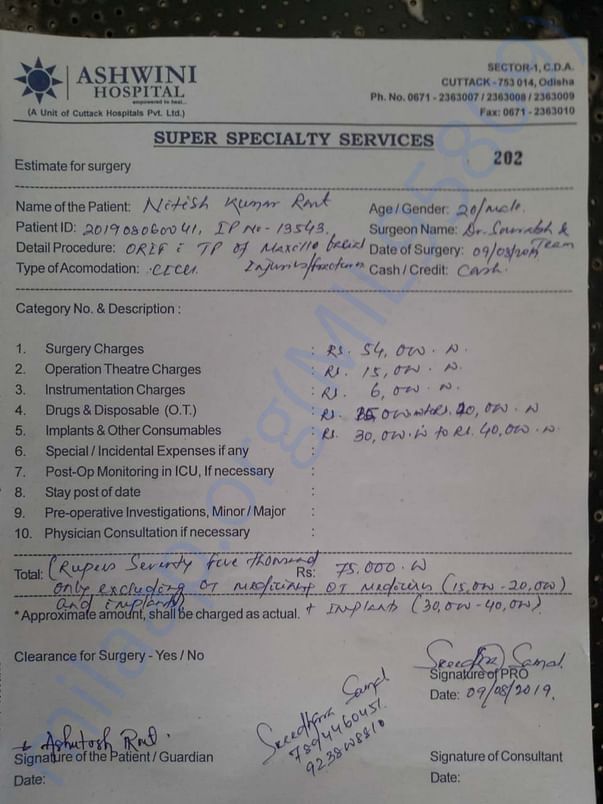 ASHWINI
HOSPITAL
empowered to heal...
(A Unit of Cuttack Hospitals Pvt. Ltd.)
SECTOR-1, C.D.A.
CUTTACK - 753 014, Odisha
Ph. No. 0671 - 2363007 / 2363008 / 2363009
Fax: 0671 - 2363010
SUPER SPECIALTY SERVICES
Estimate for surgery
202
Name of the Patient: Nitish Kumar Rout
Age / Gender: 20/male.
Patient ID: 201908060041, IP No - 13543.
Surgeon Name: Dr. Sourabh & Team
Detail Procedure: ORIF TP of Maxillo facial Injuries/fractures
Date of Surgery: 09/08/2019
Type of Acomodation:
Cash / Credit: Cash.
Category No. & Description :
1. Surgery Charges : Rs. 54,000.
2. Operation Theatre Charges : Rs. 15,000.
3. Instrumentation Charges : Rs. 6,000.
4. Drugs & Disposable (O.T.) : Rs. 15,000 to Rs. 20,000.
5. Implants & Other Consumables : Rs. 30,000 to Rs. 40,000.
6. Special / Incidental Expenses if any :
7. Post-Op Monitoring in ICU, If necessary :
8. Stay post of date :
9. Pre-operative Investigations, Minor / Major :
10. Physician Consultation if necessary :
Total: (Rupees Seventy five thousand Rs: 75.000.
only excluding OT medicines OT medicines (15,000 - 20,000)
and implants) + Implants (30,000 - 40,000).
*Approximate amount, shall be charged as actual.
Clearance for Surgery - Yes / No
Signature of PRO
Date: 09/08/2019.
Samal
7894460451.
Ashutosh Rout.
Signature of the Patient / Guardian
Date:
Signature of Consultant
Date: